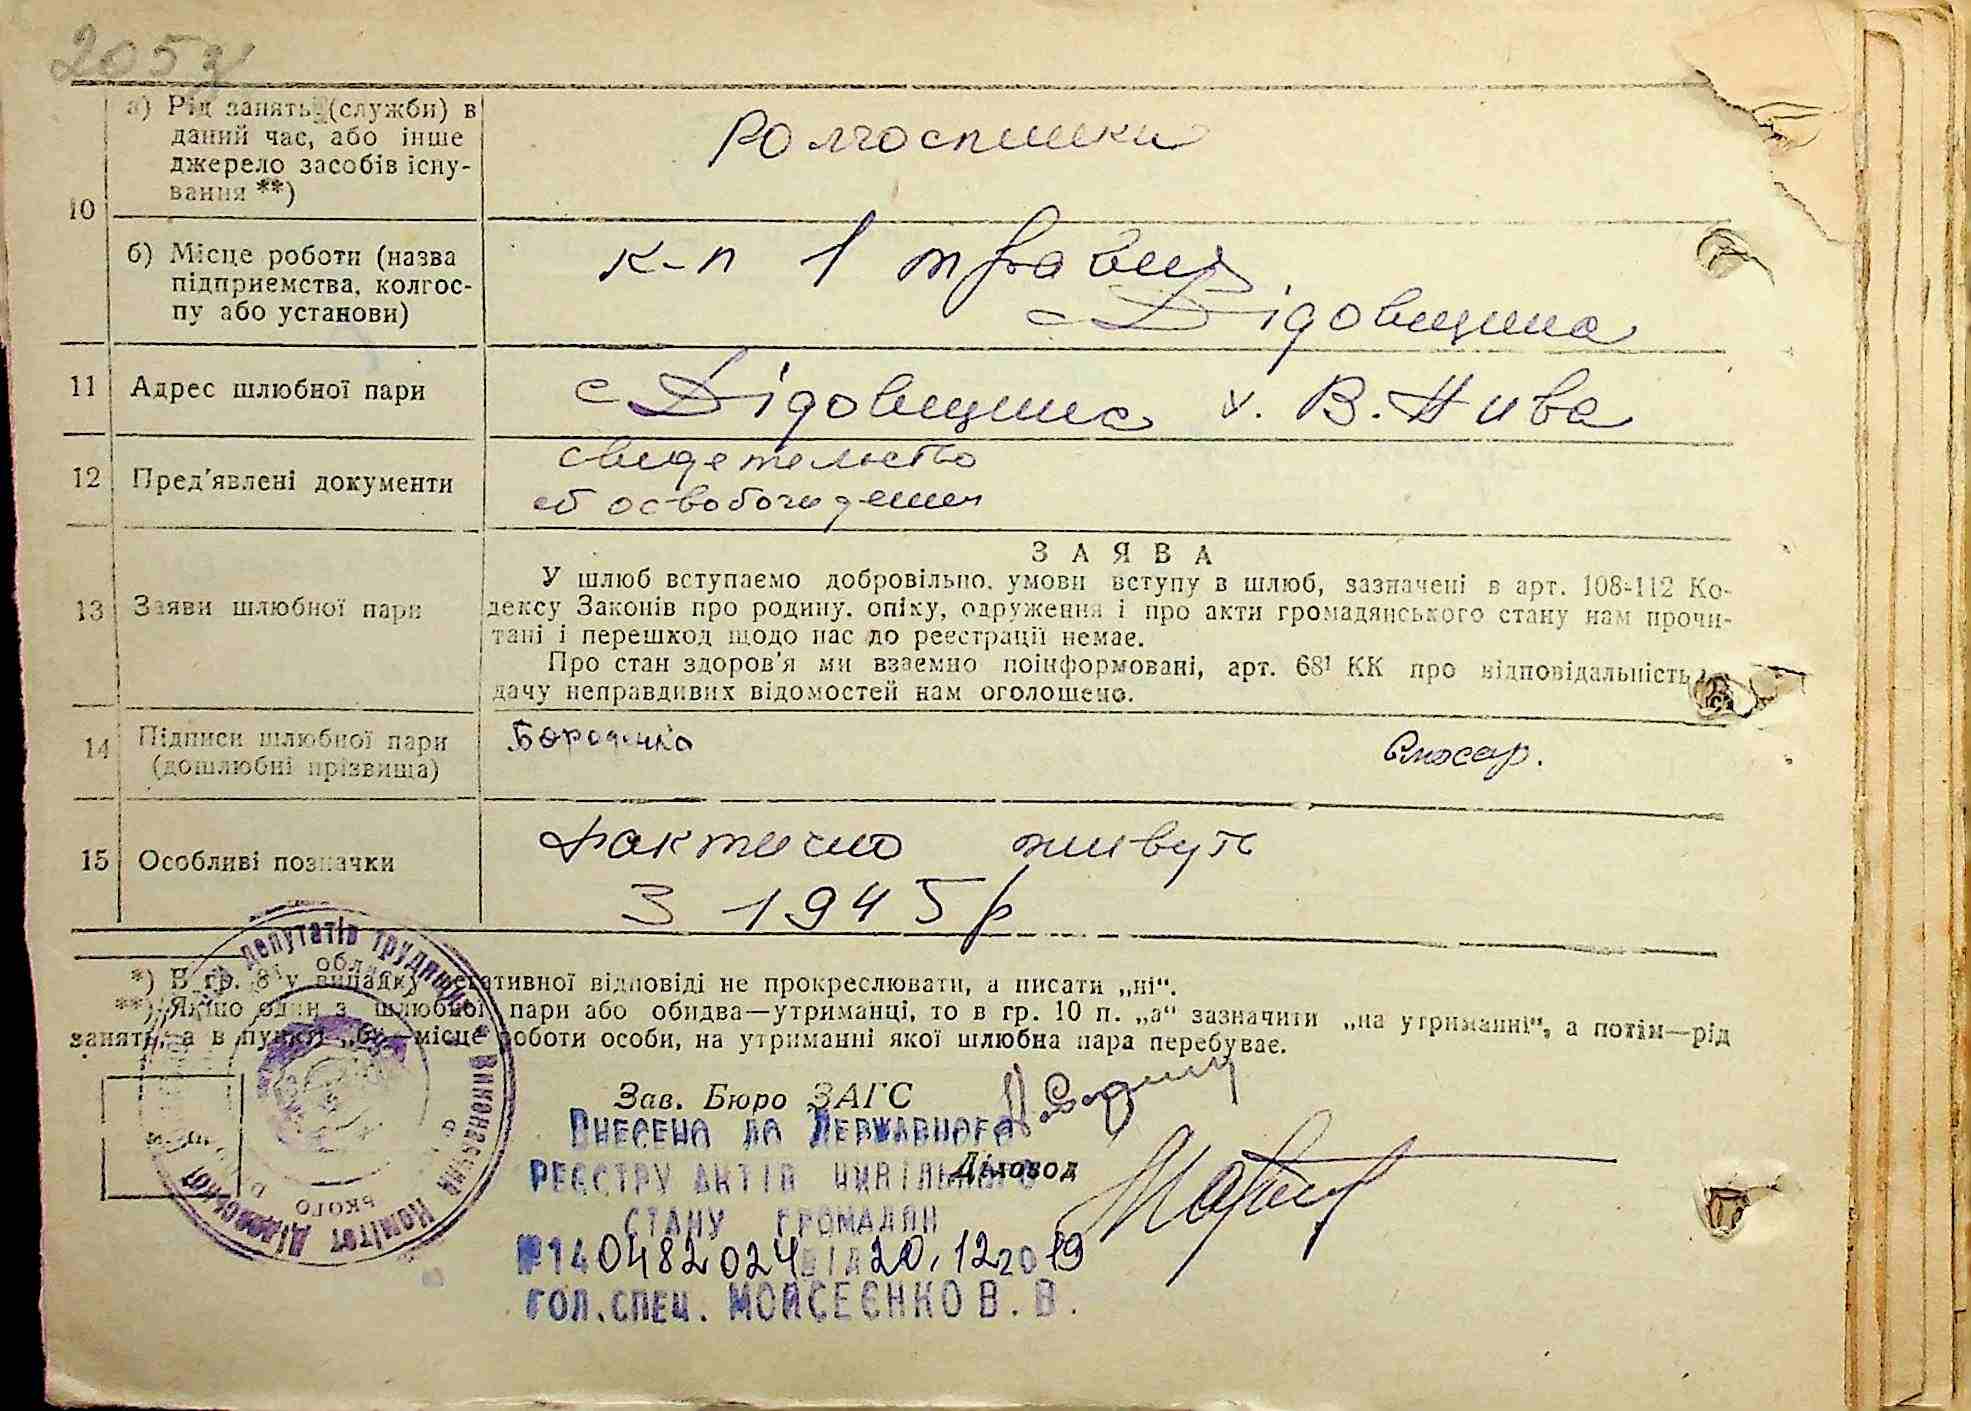 205
а) Рід занять (служби) в
даний час, або інше
джерело засобів існу-
вання **)
Колгоспники
10
б) Місце роботи (назва
підприємства, колгос-
пу або установи)
к-п 1 травня
с Дідовщина
11 Адрес шлюбної пари
с Дідовщина х. В. Нива
12 Пред'явлені документи
свидетельство
об освобождении
13 Заяви шлюбної пари
ЗАЯВА
У шлюб вступаємо добровільно, умови вступу в шлюб, зазначені в арт. 108-112 Ко-
дексу Законів про родину, опіку, одруження і про акти громадянського стану нам прочи-
тані і перешкод щодо нас до реєстрації немає.
Про стан здоров'я ми взаємно поінформовані, арт. 68¹ КК про відповідальність
дачу неправдивих відомостей нам оголошено.
14 Підписи шлюбної пари
(дошлюбні прізвища)
Слюсар.
15 Особливі позначки
фактично живуть
З 1945 р
*) В гр. 8 у випадку негативної відповіді не прокреслювати, а писати „ні“.
**) Якщо один з шлюбної пари або обидва—утриманці, то в гр. 10 п. „а“ зазначити „на утриманні“, а потім—рід
занять, а в пункті „б“ місце роботи особи, на утриманні якої шлюбна пара перебуває.
депутатів трудящих * Виконавчий Комітет Дідовської
Зав. Бюро ЗАГС
ВНЕСЕНО ДО ДЕРЖАВНОГО
РЕЄСТРУ АКТІВ ЦИВІЛЬНОГО
Діловод
СТАНУ ГРОМАДЯН
№140482024 ВІД 20.12 2019
ГОЛ.СПЕЦ. МОЙСЕЄНКО В.В.